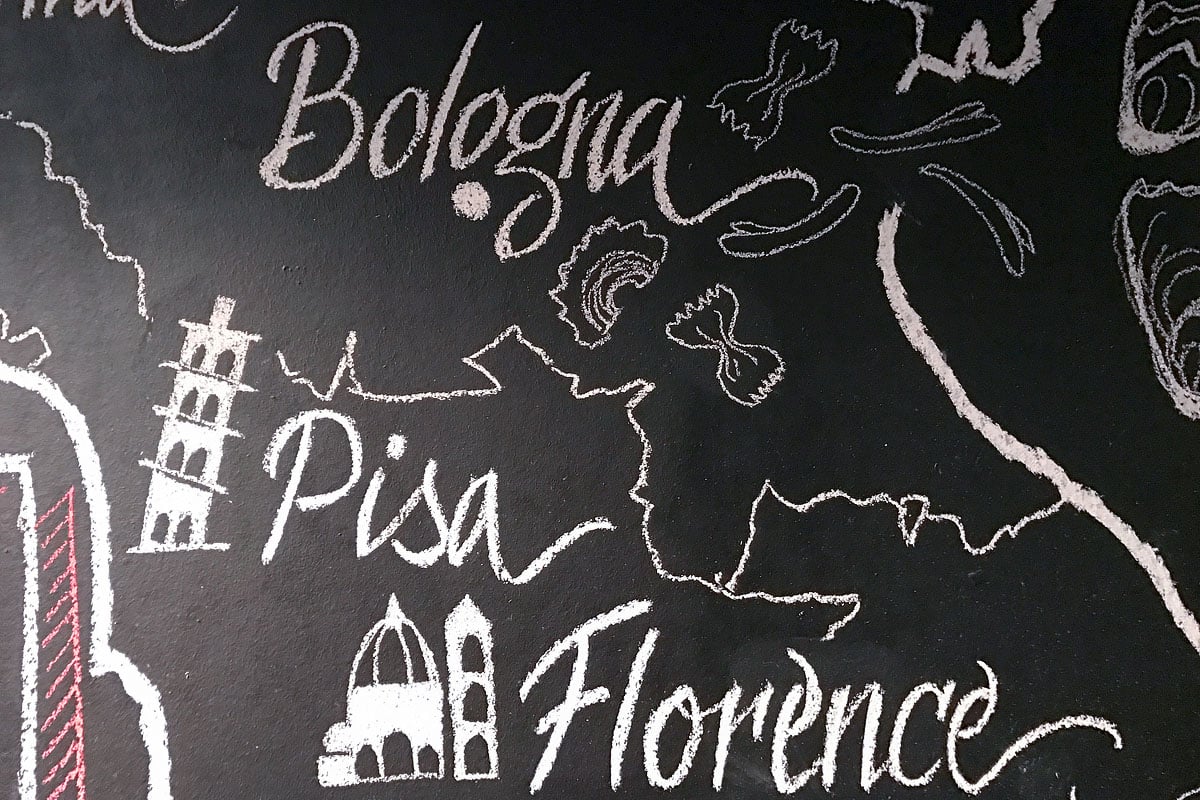 Bologna
Pisa
Florence